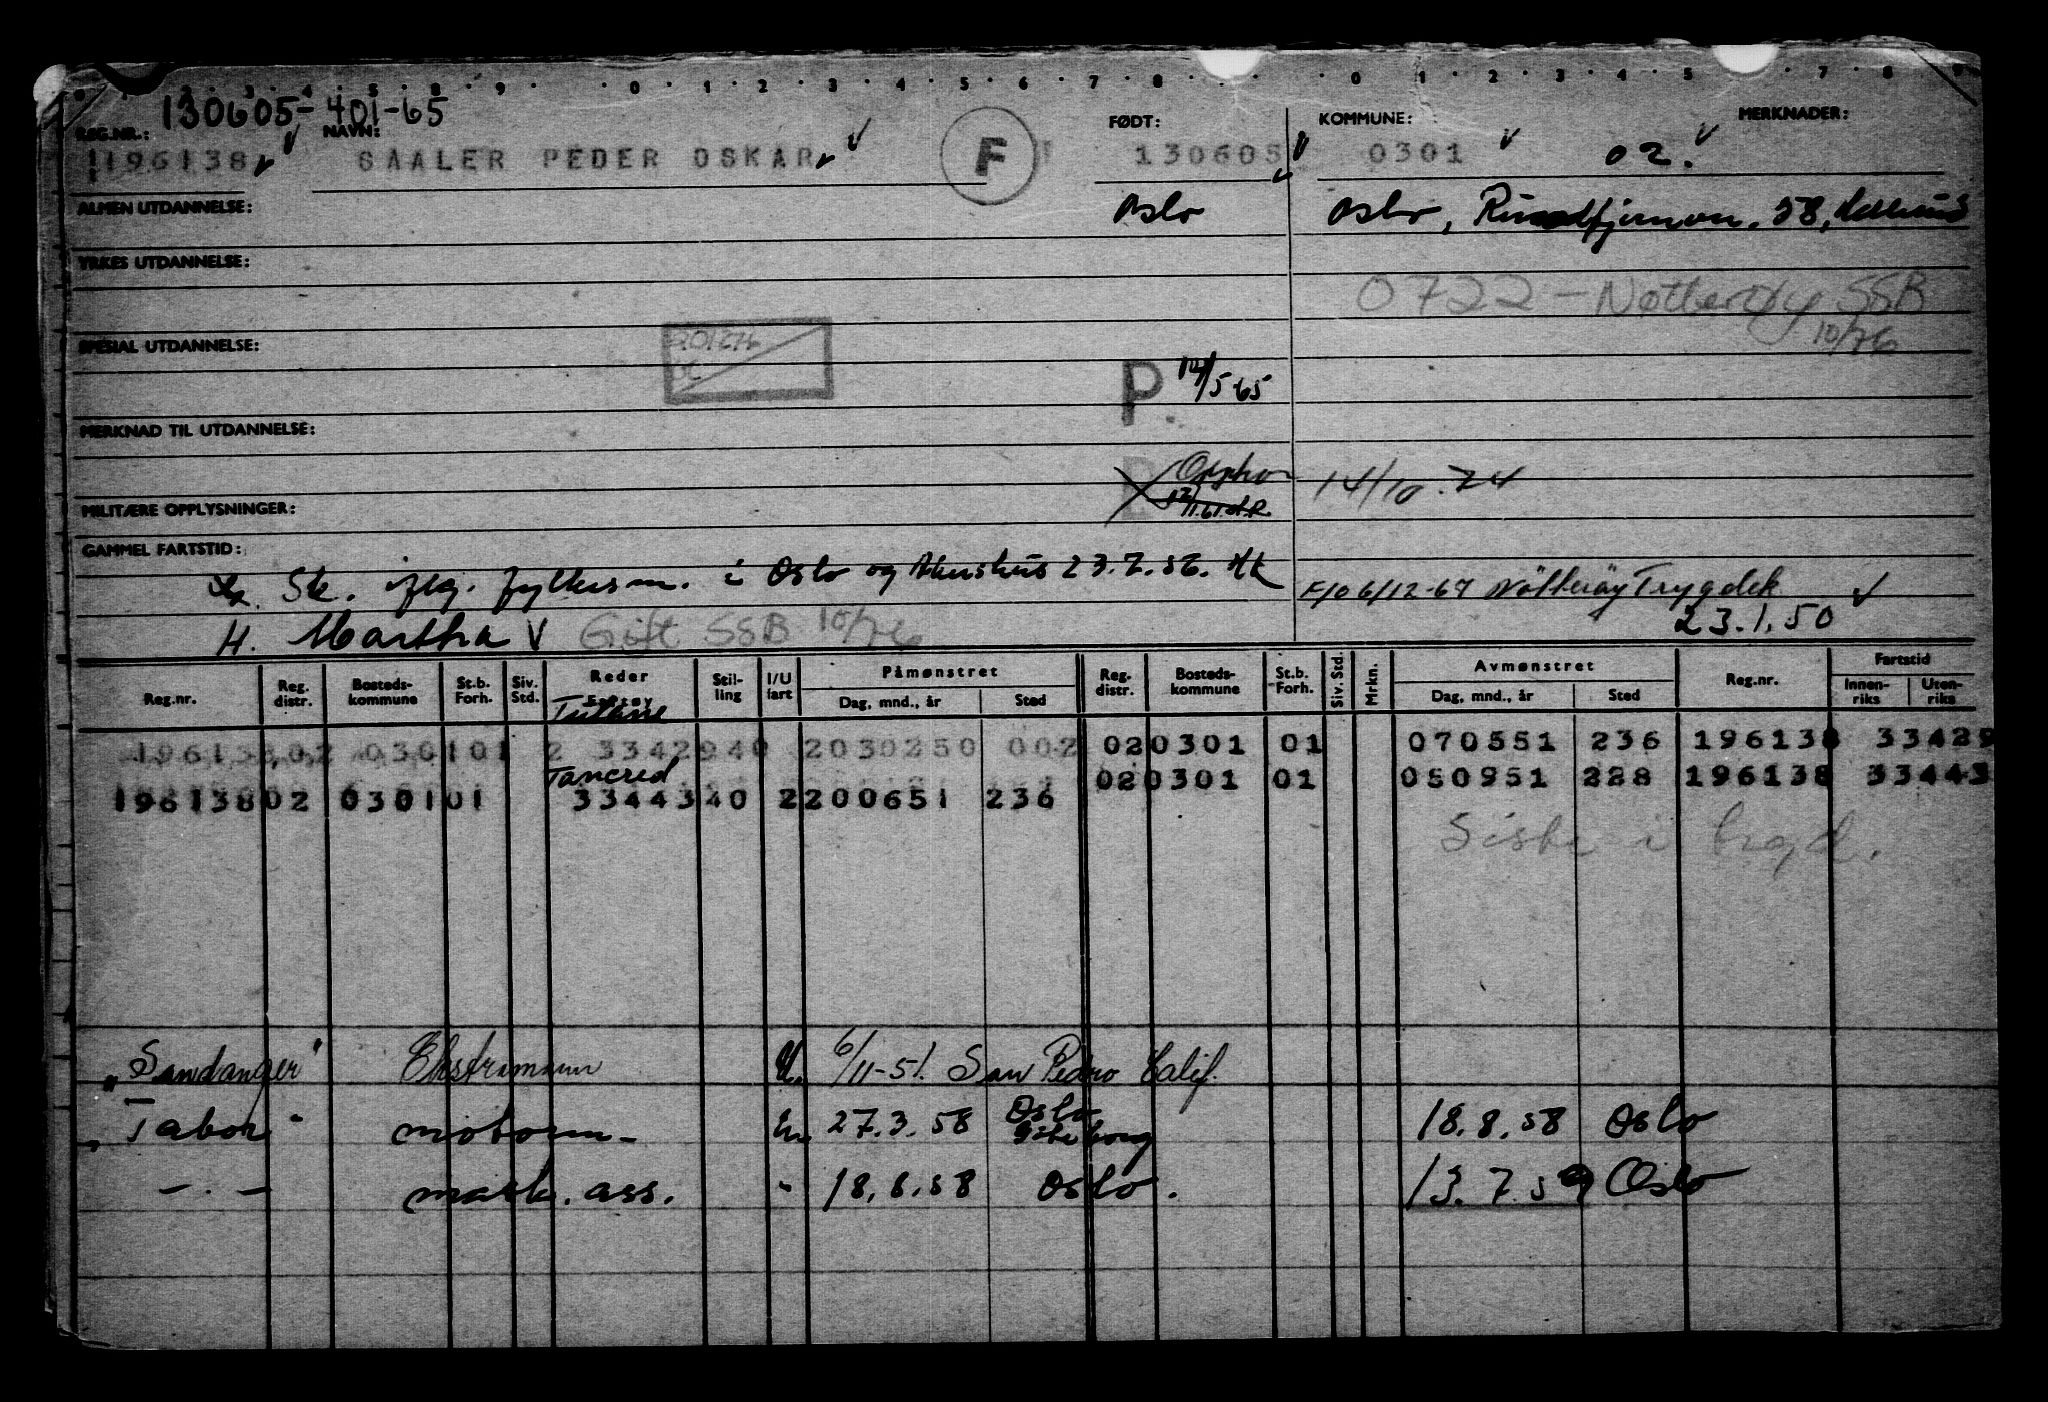 130605-401-65
REG.NR.: NAVN: FØDT: KOMMUNE: MERKNADER:
196138 SAALER PEDER OSKAR F 130605 0301 02.
ALMEN UTDANNELSE: Oslo Oslo, 58,
YRKES UTDANNELSE:
0722 - Nøtterøy SSB
10/76
SPESIAL UTDANNELSE:
P 12/5-65
MERKNAD TIL UTDANNELSE:
14/10.74
MILITÆRE OPPLYSNINGER:
GAMMEL FARTSTID:
Sk. iflg. fylkesm. i Oslo og Akershus 23.7.56.
F/O 6/12-67 Nøtterøy Trygdek
23.1.50
H. Martha V Gift SSB 10/76
Reg.nr. Reg. distr. Bosteds-kommune St.b. Forh. Siv. Std. Reder Stil-ling I/U fart Påmønstret Dag, mnd., år Sted Reg. distr. Bosteds-kommune St.b. Forh. Siv. Std. Mrkn. Avmønstret Dag, mnd., år Sted Reg.nr. Fartstid Innen-riks Uten-riks
196138 02 0301 01 2 33429 40 2 030250 002 02 0301 01 070551 236 196138 33429
Tancred
196138 02 0301 01 33443 40 2 200651 236 02 0301 01 050951 228 196138 33443
Siste i
"Sandanger" Ekstramann U. 6/11-51. San Pedro Calif.
"Tabor" motorm. 27.3.58 Oslo Göteborg 18.8.58 Oslo
— . — mask. ass. - 18.8.58 Oslo. 13.7.59 Oslo